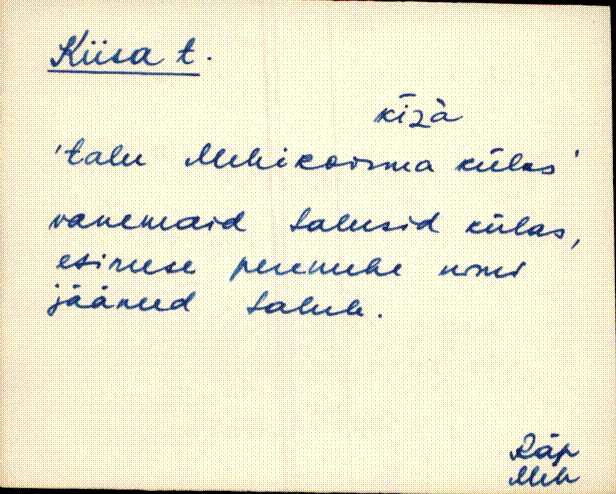 Kiisa t.
kīzà
'talu Mehikoorma külas'
vanemaid talusid külas,
esimese peremehe nimi
jäänud talule.
Räp
Meh